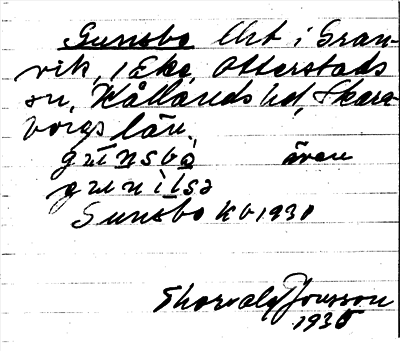 Gunsbo Urt i Gran-
vik, 1 Eke, Otterstads
sn, Kållands hd, Skara-
borgs län.
även
Gunsbo Kb 1930
Thorvald Jonsson
1935